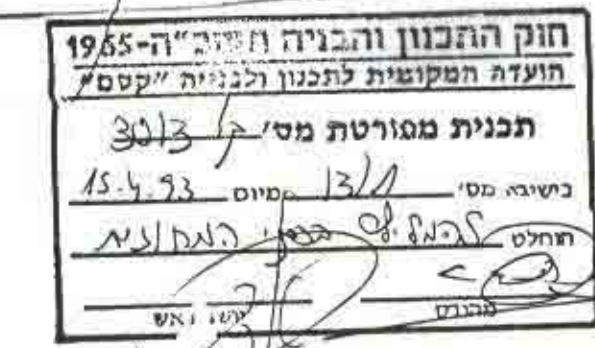 חוק התכנון והבניה תשכ"ה-1965
הועדה המקומית לתכנון ולבנייה "קסם"
תכנית מפורטת מס' ק/3013
בישיבה מס' 13/1 מיום 15.4.93
הוחלט להמליץ בפני המחוזית
מהנדס יושב ראש